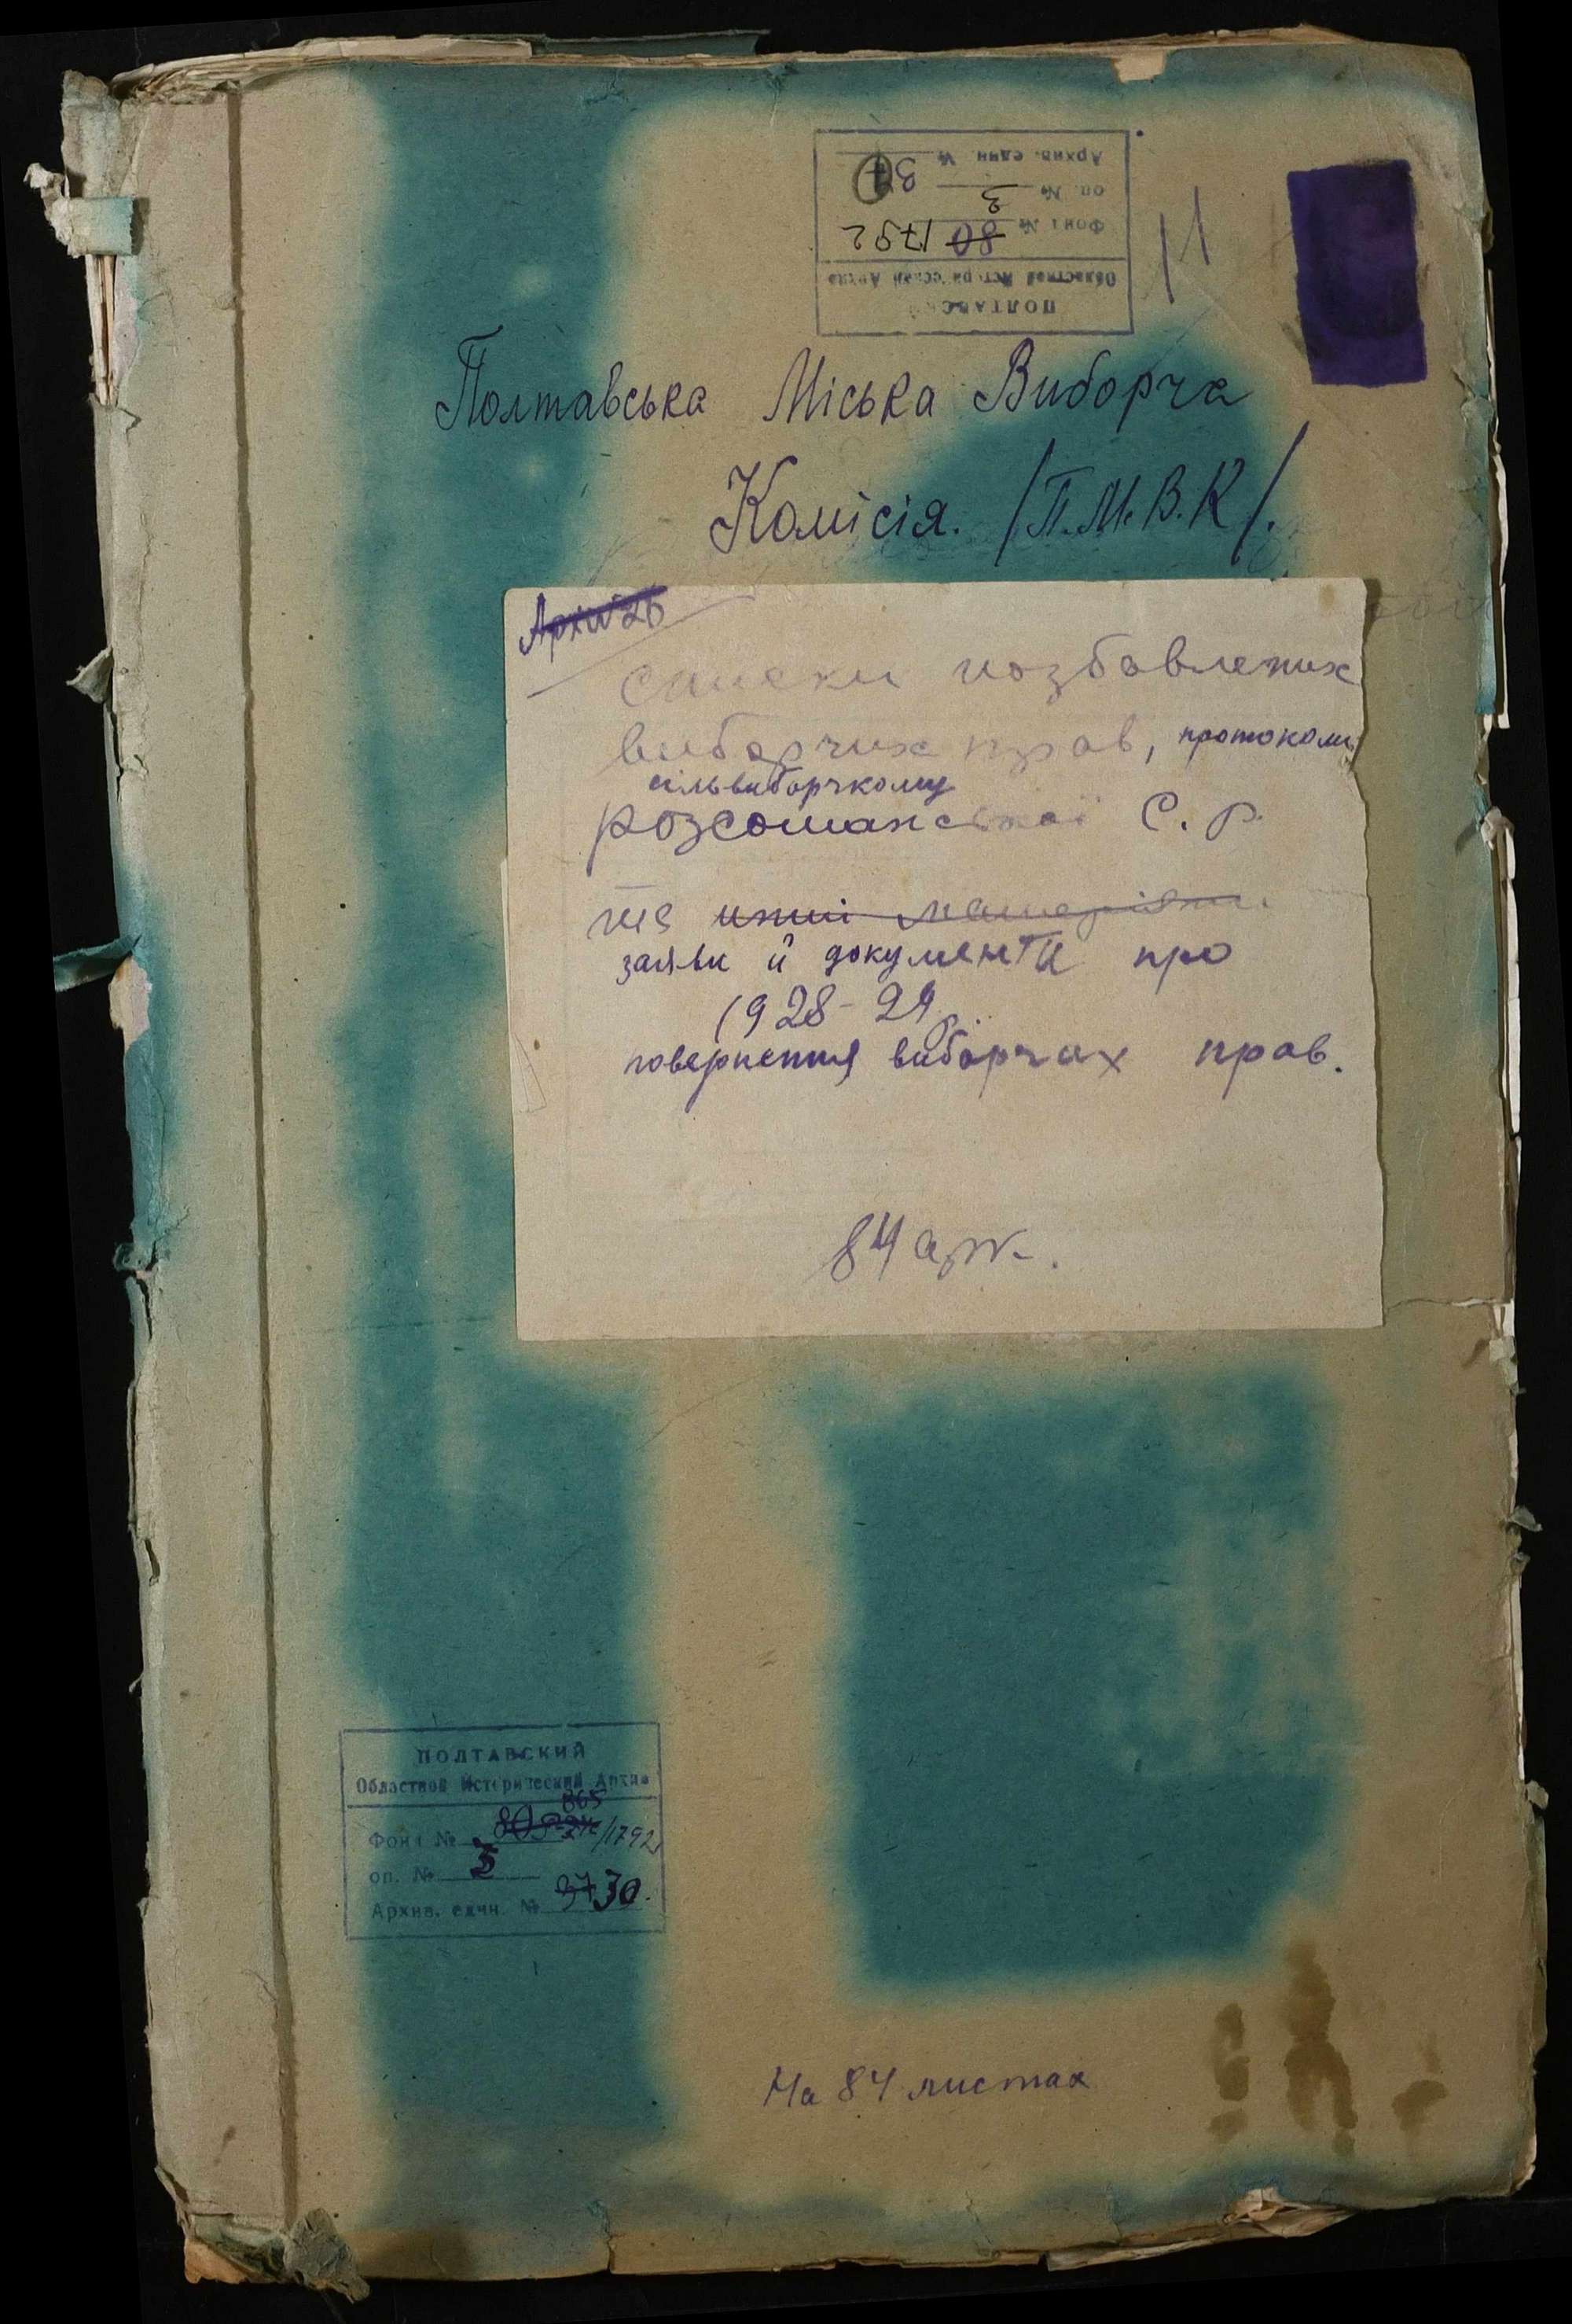 ПОЛТАВС
Областной Историческии Архив
Фонд № 80 1792
оп. № 3
Архив. един. №
11
Полтавська Міська Виборча
Комісія. /П.М.В.К/.
списки позбавлених
виборчих прав, протоколи
сільвиборчкому
Розсошанської С. Р.
та инші матеріяли
заяви й документи про
1928-29 р.
повернення виборчих прав.
84 арк.
ПОЛТАВСКИЙ
Областной Исторический Архив
865
Фонд № /1792
оп. № 3
Архив. един. № 37 30.
На 84 листах